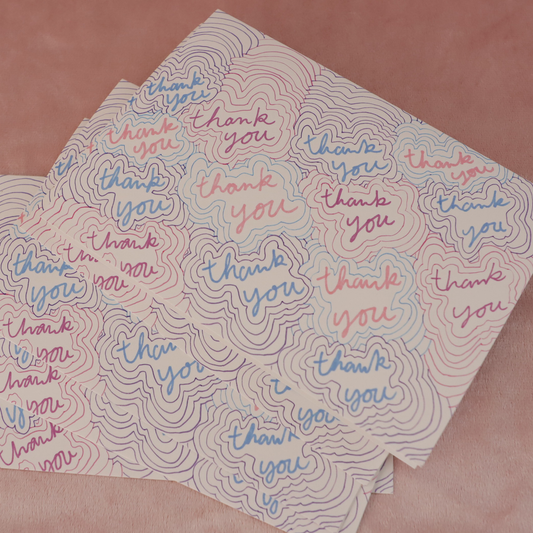 thank
you
thank
you
thank
you
thank
you
thank
you
thank
you
thank
you
thank
you
thank
you
thank
you
thank
you
thank
you
thank
you
thank
you
thank
you
thank
you
thank
you
thank
you
thank
you
you
thank
you